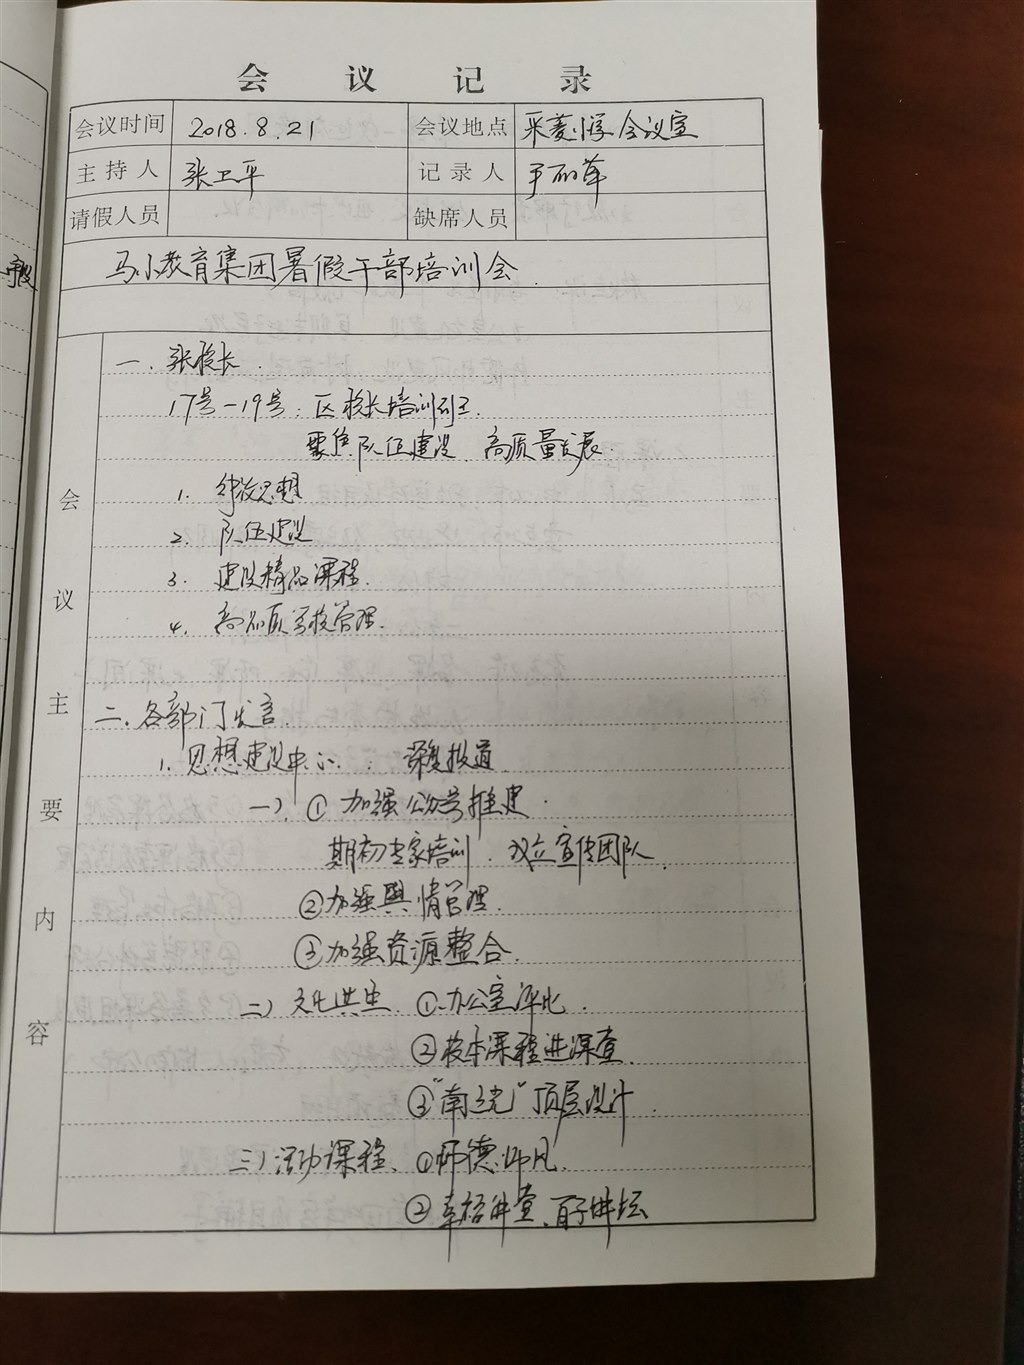 会议记录
会议时间 2018.8.21 会议地点 采菱小学会议室
主持人 张卫平 记录人 尹丽萍
请假人员 缺席人员
马小教育集团暑假干部培训会
会议主要内容
一.张校长.
17号-19号:区校长培训
聚焦队伍建设、高质量发展.
1. 思想
2. 队伍建设
3. 建设精品课程.
4. 高品质学校管理.
二.各部门发言.
1.思想建设中心: 深度报道
一).①加强公众号推建.
期初专家培训.成立宣传团队.
②加强舆情管理.
③加强资源整合.
二)文化共生 ①.办公室评比.
②校本课程进课查.
③"南"顶层设计.
三)活动课程、①师德师风.
②幸福讲堂、百子讲坛